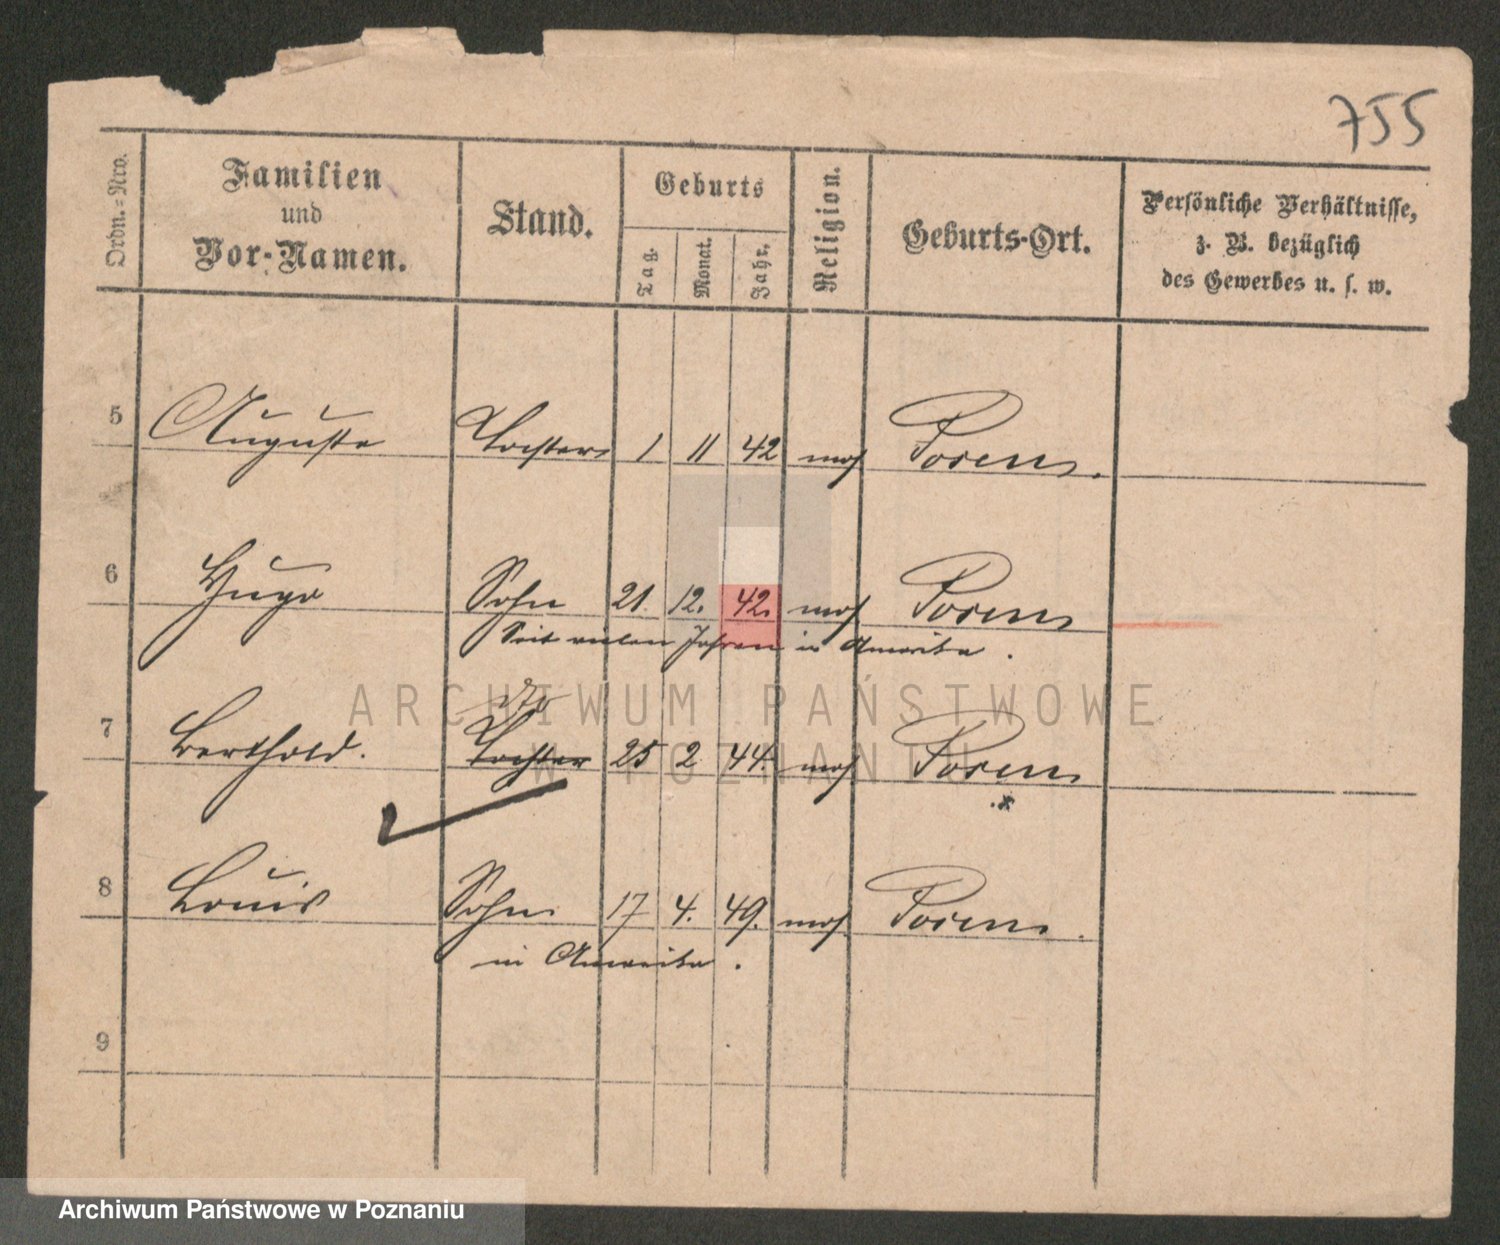 755
Ordn.=Nro.
Familien
und
Vor-Namen.
Stand.
Geburts
Tag.
Monat.
Jahr.
Religion.
Geburts-Ort.
Persönliche Verhältnisse,
z. B. bezüglich
des Gewerbes u. s. w.
5 Auguste Tochter 1 11 42 mos Posen.
6 Hugo Sohn 21. 12. 42. mos Posen
Seit vielen Jahren in Amerika.
7 Berthold. Tochter 25 2 44. mos Posen
8 Louis Sohn 17 4. 49. mos. Posen.
in Amerika.
9
ARCHIWUM PAŃSTWOWE
W POZNANIU
Archiwum Państwowe w Poznaniu